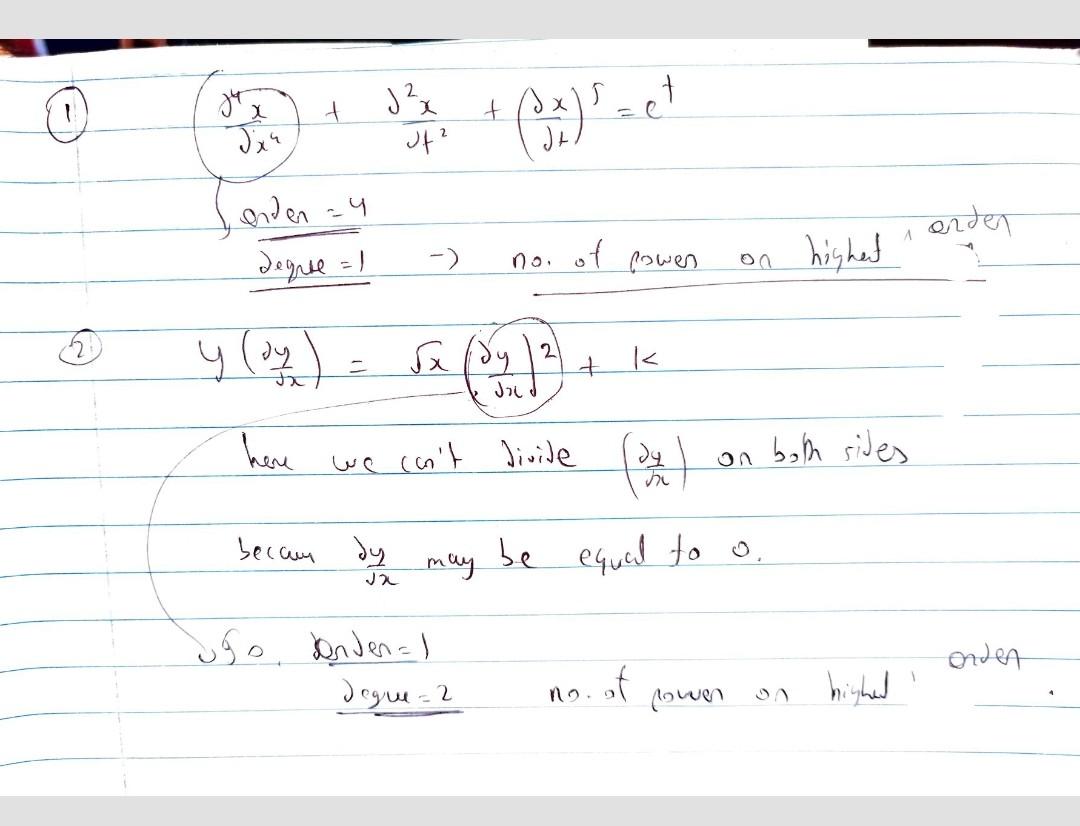 ① d⁴x/dx⁴ + d²x/dt² + (dx/dt)⁵ = eᵗ
order = 4
degree = 1 → no. of power on highest order
② y (dy/dx) = √x (dy/dx)² + k
here we can't divide (dy/dx) on both sides
becaus dy/dx may be equal to 0.
so, order = 1
degree = 2 no. of power on highest order